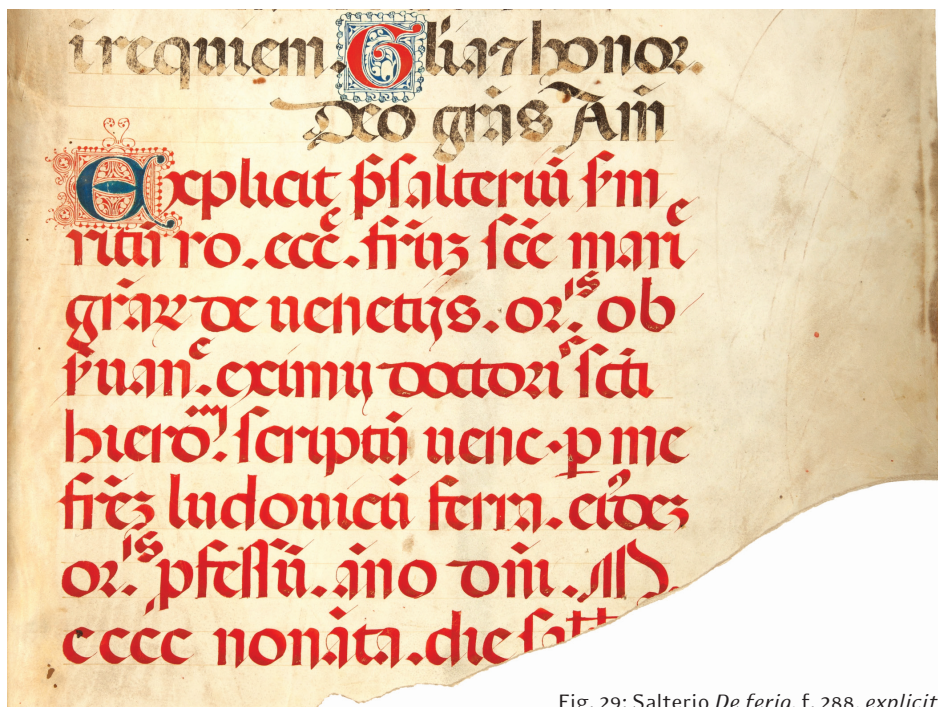 i requiem. Glia⁊ honor.
Deo gr̄as Am̄
Explicit p̄salteriū s̄m
ritū ro. ccc̄. fr̄uȝ sc̄e mari
gr̄aꝝ de uenetijs. or.is ob
s̄uan.c eximij doctoris sc̄ti
hierōm. scriptū uene. p me
fr̄eȝ ludouicū ferra. eideȝ
or.is p̄fessū. āno dn̄i. M.
cccc nonāta. die
Fig. 29: Salterio De feria, f. 288, explicit